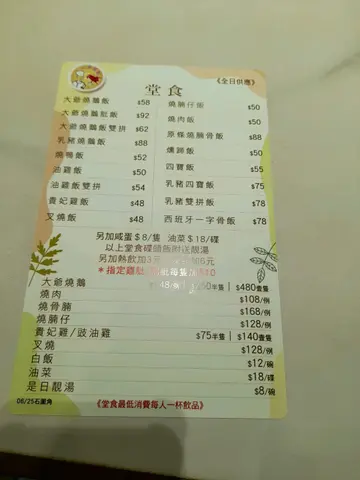 《全日供應》
堂食
大爺燒鵝飯 $58
大爺燒鵝髀飯 $92
大爺燒鵝飯雙拼 $62
乳豬燒鵝飯 $88
燒鴨飯 $52
油雞飯 $50
油雞飯雙拼 $54
貴妃雞飯 $48
叉燒飯 $48
燒腩仔飯 $50
燒肉飯 $50
原條燒腩骨飯 $88
燻蹄飯 $50
四寶飯 $55
乳豬四寶飯 $75
乳豬雙拼飯 $78
西班牙一字骨飯 $78
另加咸蛋$8/隻 油菜$18/碟
以上堂食碟頭飯附送靚湯
另加熱飲加3元
6元
*指定雞髀
每隻
10
大爺燒鵝 半隻 | $480壹隻
燒肉 $108/例
燒骨腩 $168/例
燒腩仔 $128/例
貴妃雞/豉油雞 $75半隻 | $140壹隻
叉燒 $128/例
白飯 $12/碗
油菜 $18/碟
是日靚湯 $8/碗
06/25石圍角
《堂食最低消費每人一杯飲品》